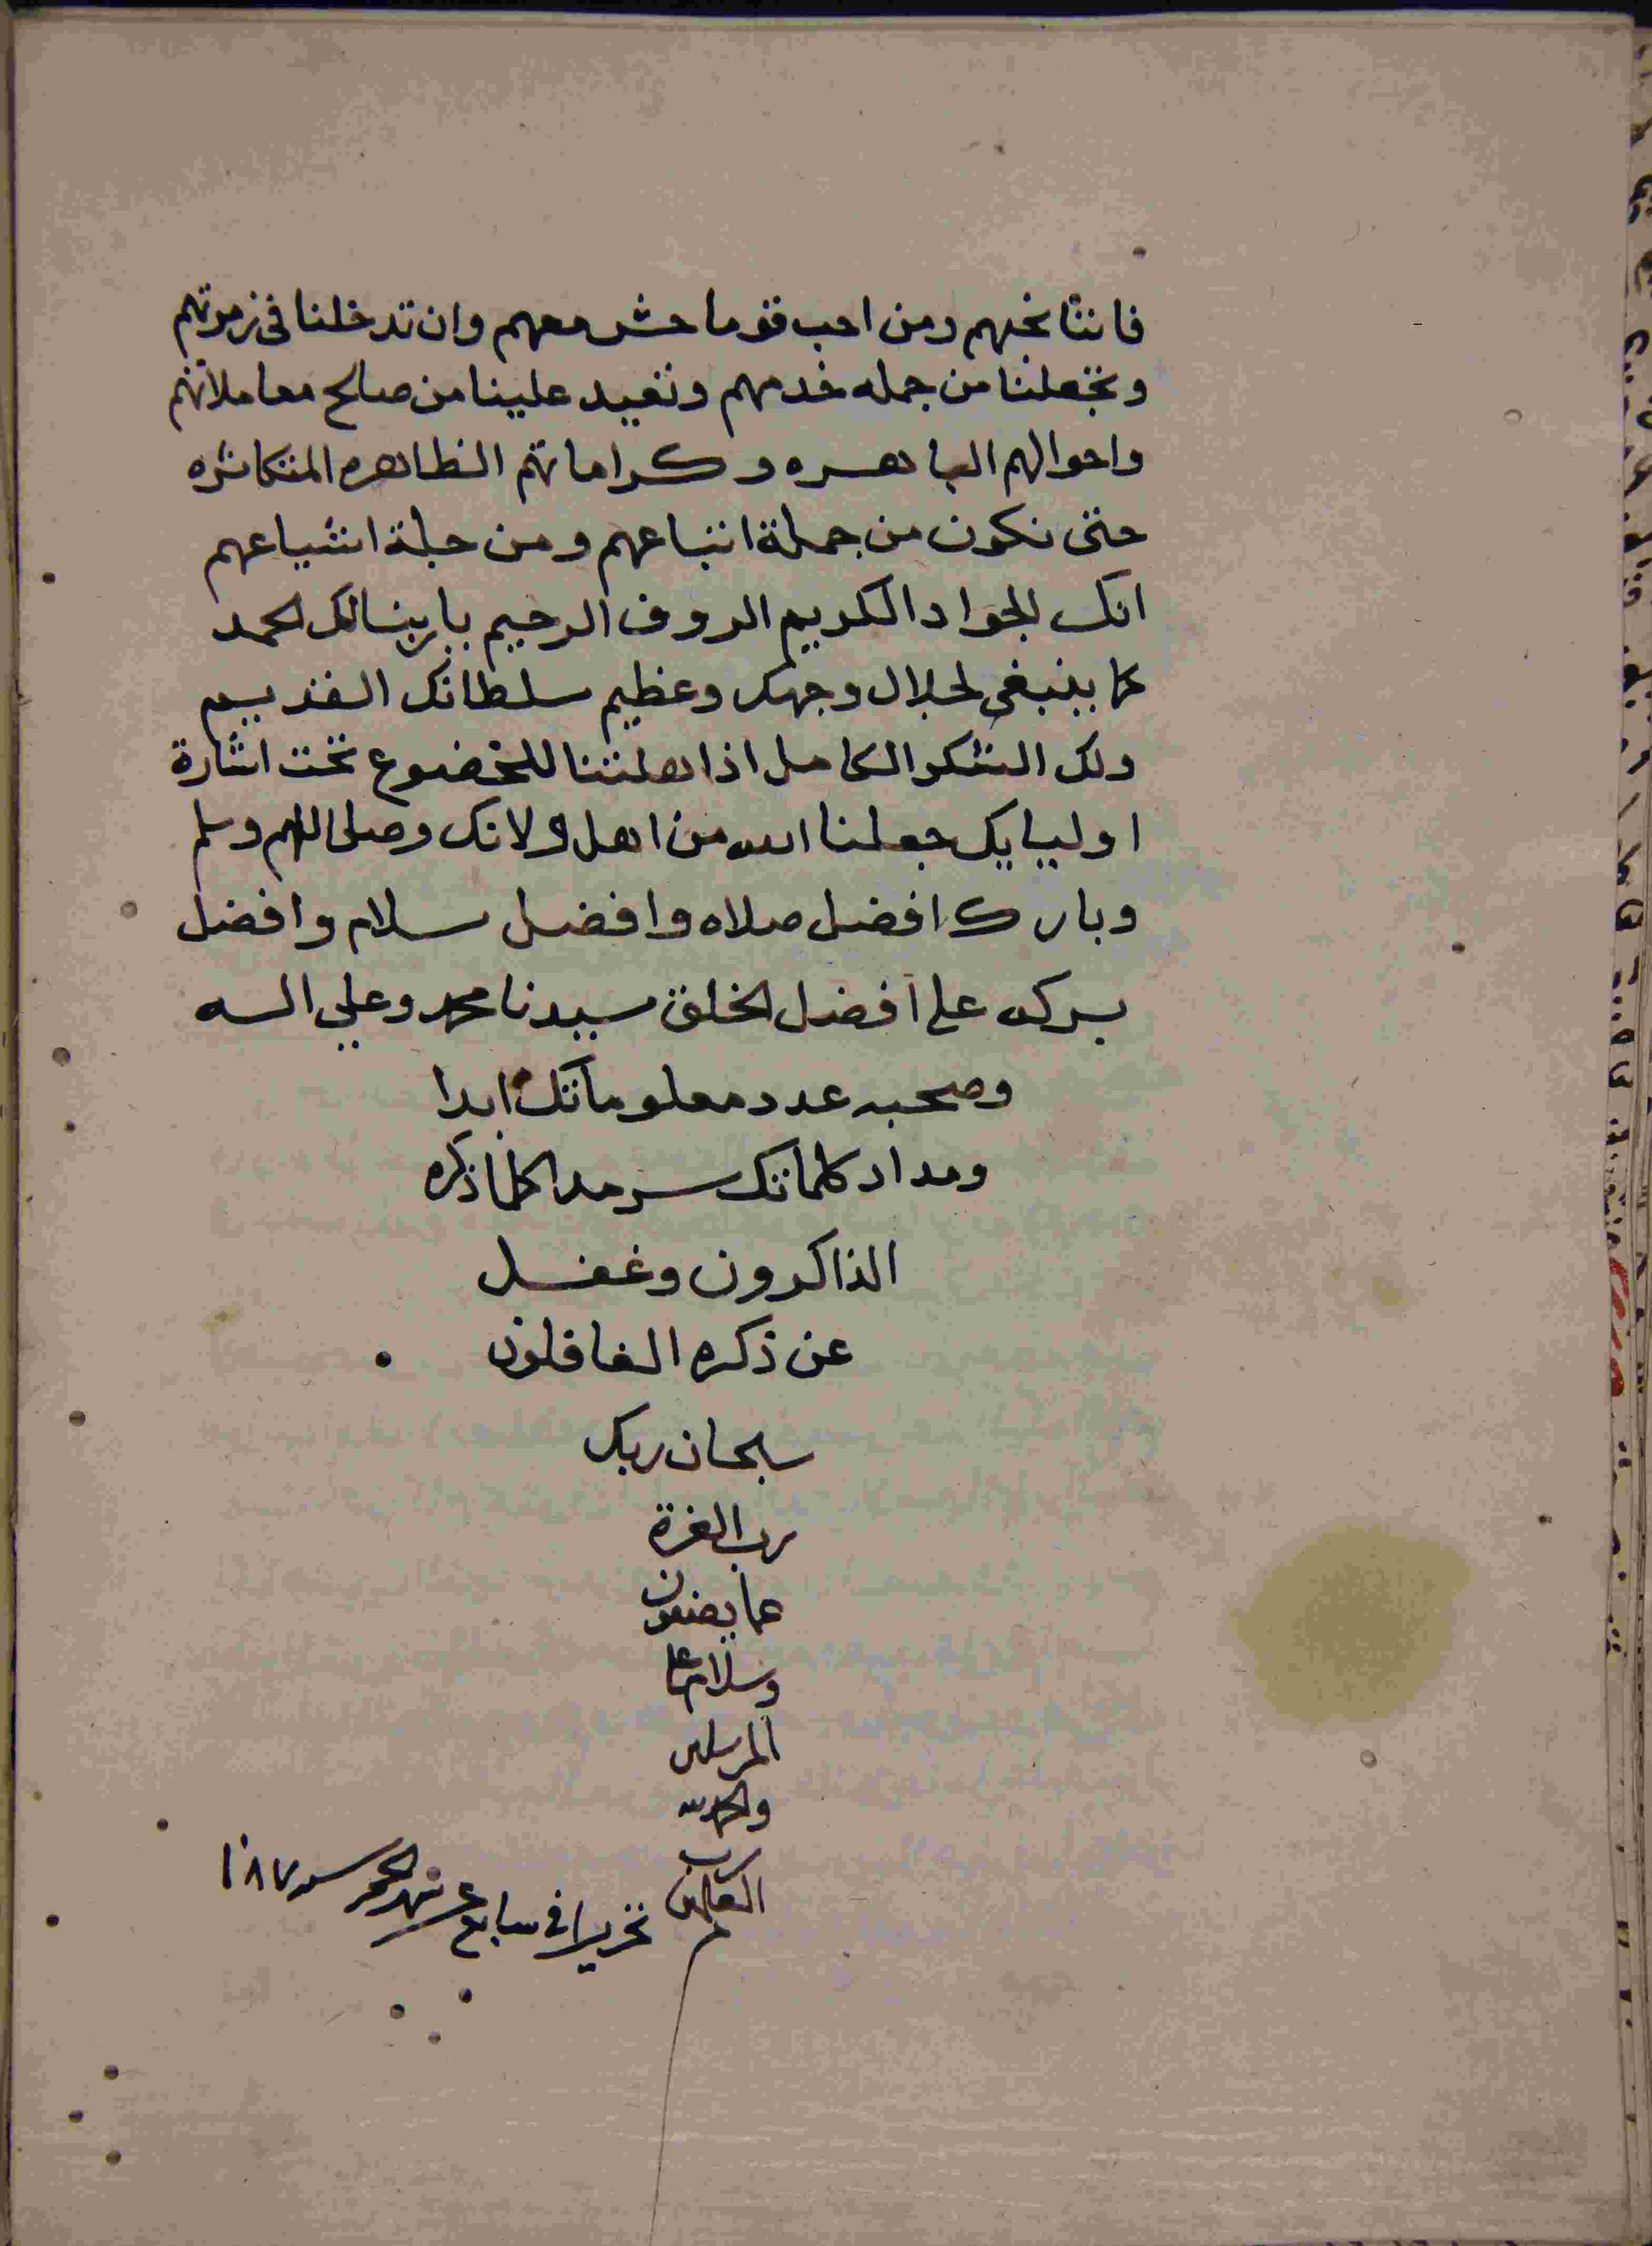 فاننا نحبهم ومن احب قوما حشر معهم وان تدخلنا فى زمرتهم
وتجعلنا من جمله خدمهم وتعيد علينا من صالح معاملاتهم
واحوالهم الباهره وكراماتهم الظاهره المتكاثره
حتى نكون من جملة اتباعهم ومن جملة اشياعهم
انك الجواد الكريم الروف الرحيم ياربنا لك الحمد
كما ينبغى لجلال وجهك وعظيم سلطانك القديم
ولك الشكر الكامل اذا هلتنا للخضوع تحت اشارة
اوليايك جعلنا الله من اهل ولانك وصلى اللهم وسلم
وبارك افضل صلاه وافضل سلام وافضل
بركه على افضل الخلق سيدنا محمد وعلي اله
وصحبه عدد معلوماتك ابدا
ومداد كلماتك سرمدا كلما ذكره
الذاكرون وغفل
عن ذكره الغافلون
سبحان ربك
رب العزة
عما يصفون
وسلام على
المرسلين
والحمد لله
رب
العالمين
تحريرا فى سابع عشر شهر سنه ١٠٨٧